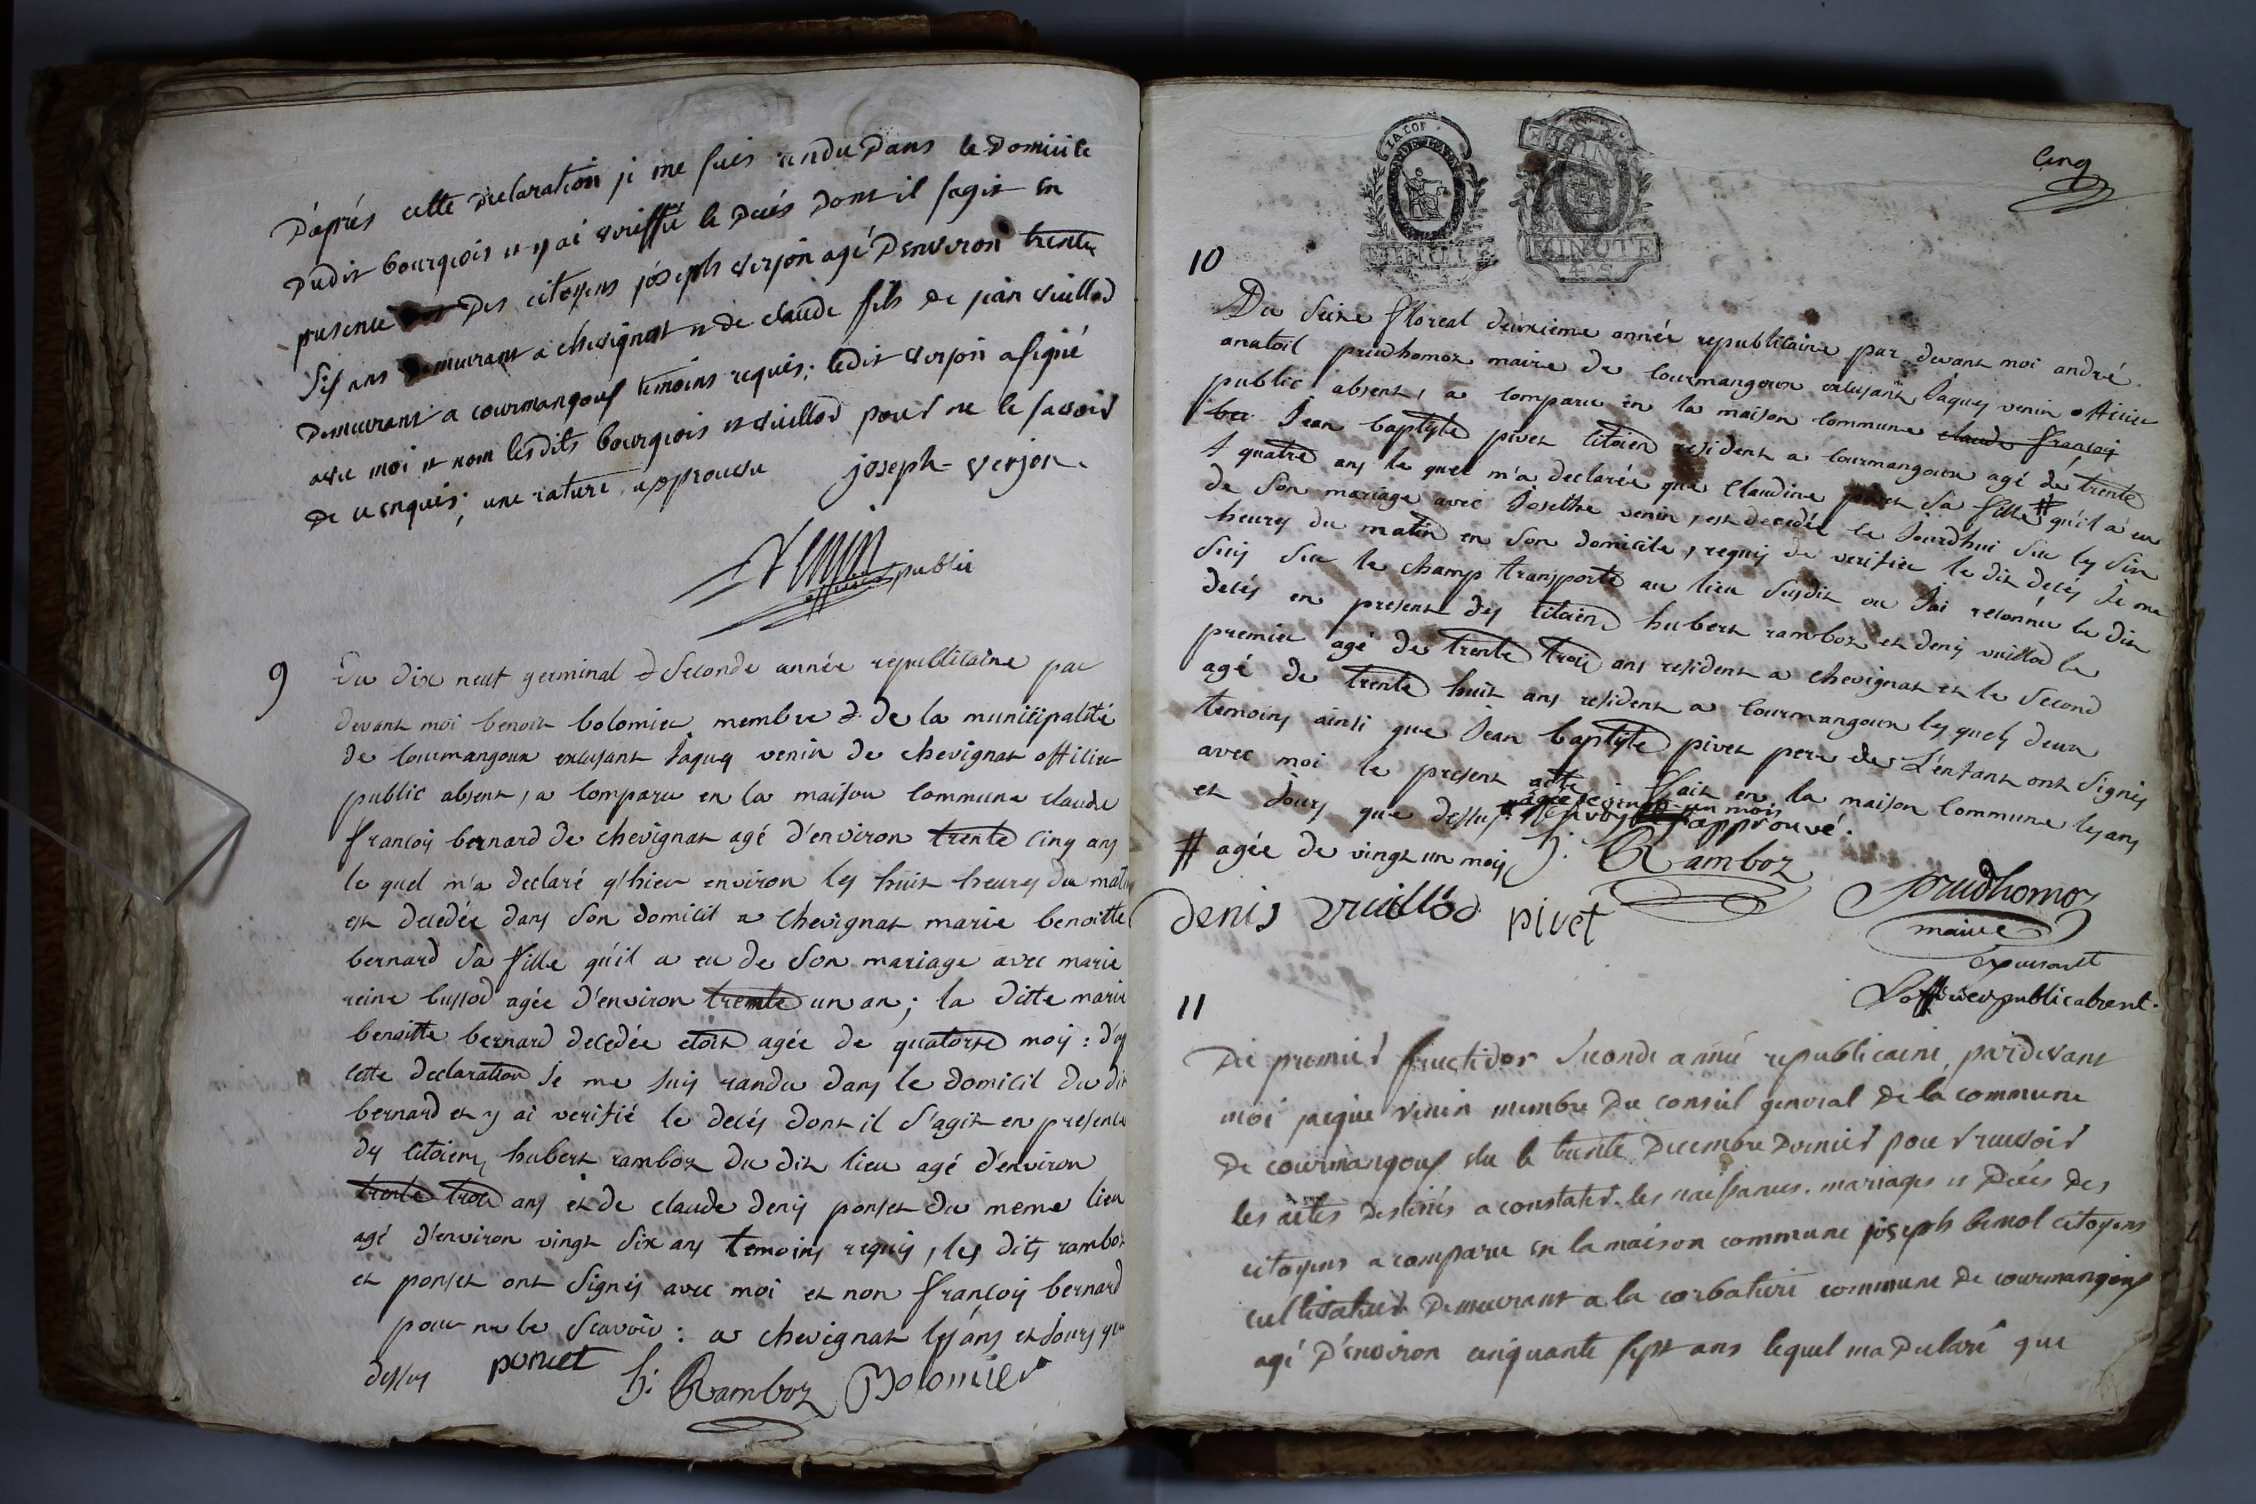 D'aprés cette declaration je me suis rendu Dans le Domicile
Dudit bourgeois et y ai veriffié le Decés Dont il sagit en
presence Des citoyens joseph verjon agé D'environ trente
six ans Demeurant a chevignat et de claude fils de jean vuillod
Demeurant a courmangoux temoins requis; ledit verjon a signé
avec moi et non lesdits bourgeois et vuillod pour ne le savoir
De ce enquis; une rature approuvée joseph verjon
Venin
officier public
9
Du dix neuf germinal seconde année republicaine par
devant moi benoit bolomier membre de la municipalité
de Courmangoux excusant Jaques venin de chevignat officier
public absent, a comparu en la maison commune claude
françois bernard de chevignat agé d'environ trente cinq ans
le quel m'a declaré q'hier environ les huit heures du matin
est decedée dans son domicil a chevignat marie benoitte
bernard sa fille qu'il a eu de son mariage avec marie
reine bussod agée d'environ trente un an; la ditte marie
benoitte bernard decedée etoit agée de quatorse mois: d'ap
cette declaration je me suis randu dans le domicil du dit
bernard et y ai verifié le decés dont il s'agit en presence
des citoiens hubert ramboz du dit lieu agé d'environ
trente trois ans et de claude denis ponset du meme lieu
agé d'environ vingt six ans temoins requis, les dits ramboz
et ponset ont signés avec moi et non françois bernard
pour ne le scavoir: a chevignat les ans et jours que
dessus poncet h: Ramboz Bolomier
Cinq
LA LOI
MINUTE
MINUTE
10
Du seize floreal deuxieme année republicaine par devant moi andré
anatoil prudhomoz maire de Courmangoux excusant Jaques venin officier
public absent, a comparu en la maison commune claude françois
Jean baptiste pivet citoien resident a Courmangoux agé de trente
quatre ans le quel m'a declarée que Claudine pivet sa fille # qu'il a eu
de son mariage avec Josethe venin, est decedée ce Jourdhui sur les six
heures du matin en son domicile, requis de verifier le dit decés Je me
suis sur le champ transporté au lieu susdit ou J'ai reconnu le dit
decés en present des citoiens hubert ramboz et denis vuillod le
premier agé de trente trois ans resident a chevignat et le second
agé de trente huit ans resident a Courmangoux les quels deux
temoins ainsi que Jean baptiste pivet pere de L'enfant ont signés
avec moi le present acte fait en la maison commune les ans
et Jours que dessus agée de vingt un mois approuvé.
# agée de vingt un mois h: Ramboz
denis vuillod pivet prudhomoz
maire
Excusant
L'officier public absent.
11
Du premier fructidor seconde année republicaine, pardevant
moi jacque venin membre Du conseil general De la commune
De courmangoux elu le trente Decembre Dernier pour recevoir
les actes Destinés a constater les naissances, mariages et Décés Des
citoyens a comparu en la maison commune joseph benol citoyens
cultivateur Demeurant a la corbatiere commune De courmangoux
agé D'environ cinquante sept ans lequel ma Declaré que